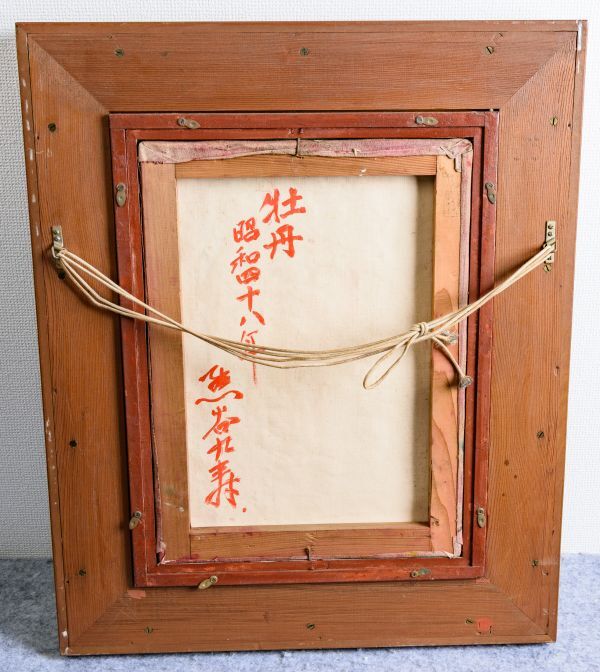 牡丹
昭和四十八年
熊谷九寿